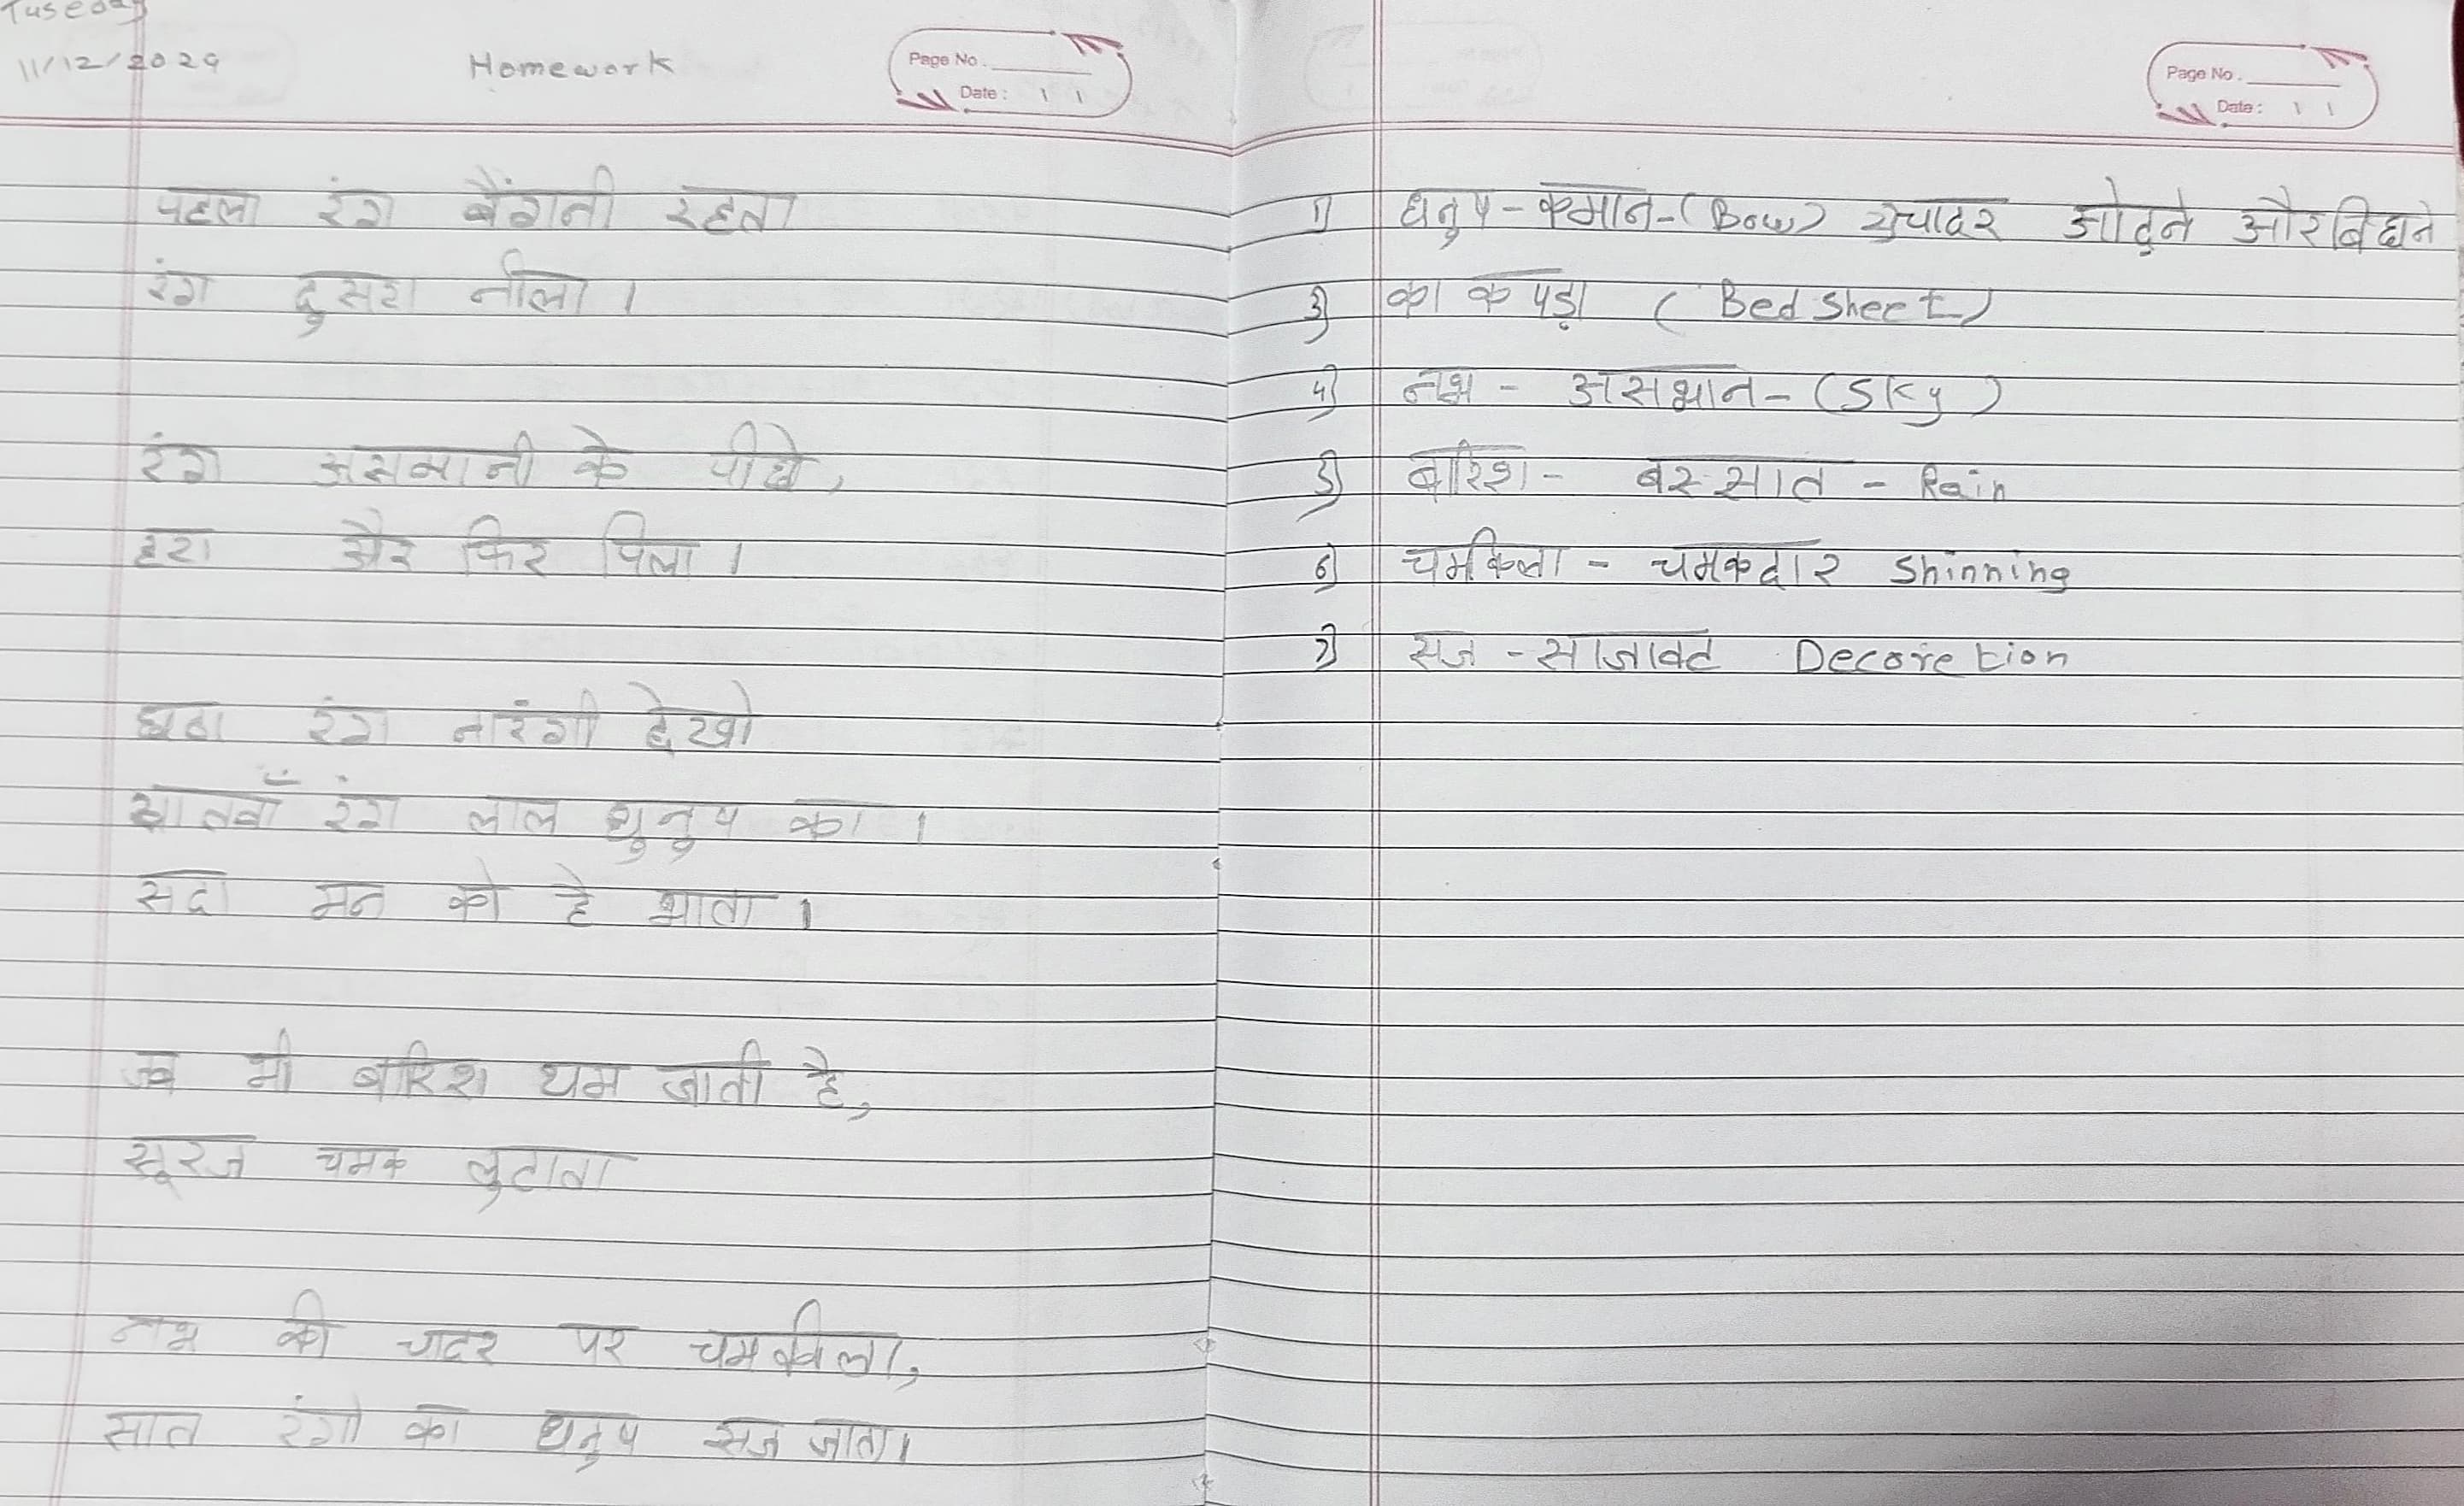 Tuseday
11/12/2024
Homework
Page No.
Date :
पहला रंग बैंगनी रहता
रंग दुसरा नीला ।
रंग असमानी के पीछे,
हरा और फिर पिला ।
छठा रंग नारंगी देखो
सातवाँ रंग लाल धुनुष का ।
सदा मन को है भाता ।
जब भी बारिश थम जाती है,
सूरज चमक लुटाता
नभ की चादर पर चमकीला,
सात रंगो का धनुष सज जाता।
Page No.
Date :
1) धनुष - कमान - (Bow) चादर ओढ़ने और बिछने
3) का कपड़ा ( Bed sheet )
4) नभ - असभान - (Sky)
5) बारिश - बरसात - Rain
6) चमकिला - चमकदार Shinning
7) सज - साजावट Decoretion